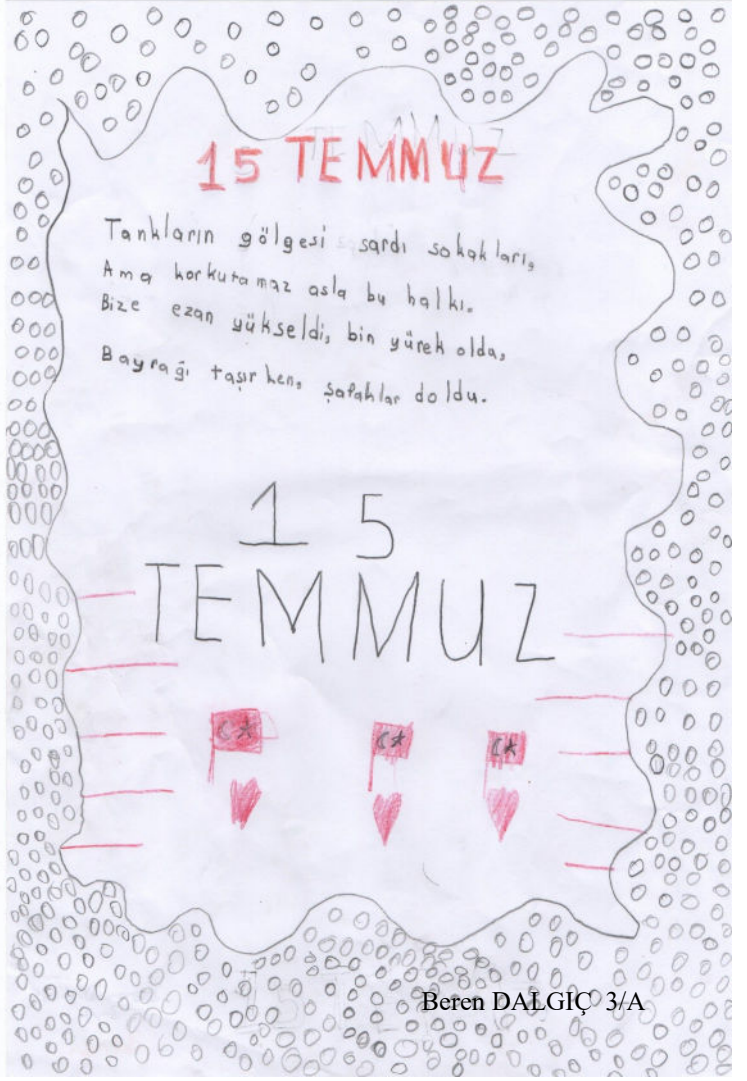 15 TEMMUZ
Tankların gölgesi sardı sokakları,
Ama korkutamaz asla bu halkı.
Bize ezan yükseldi, bin yürek oldu,
Bayrağı taşırken, şafaklar doldu.
15
TEMMUZ
Beren DALGIÇ 3/A